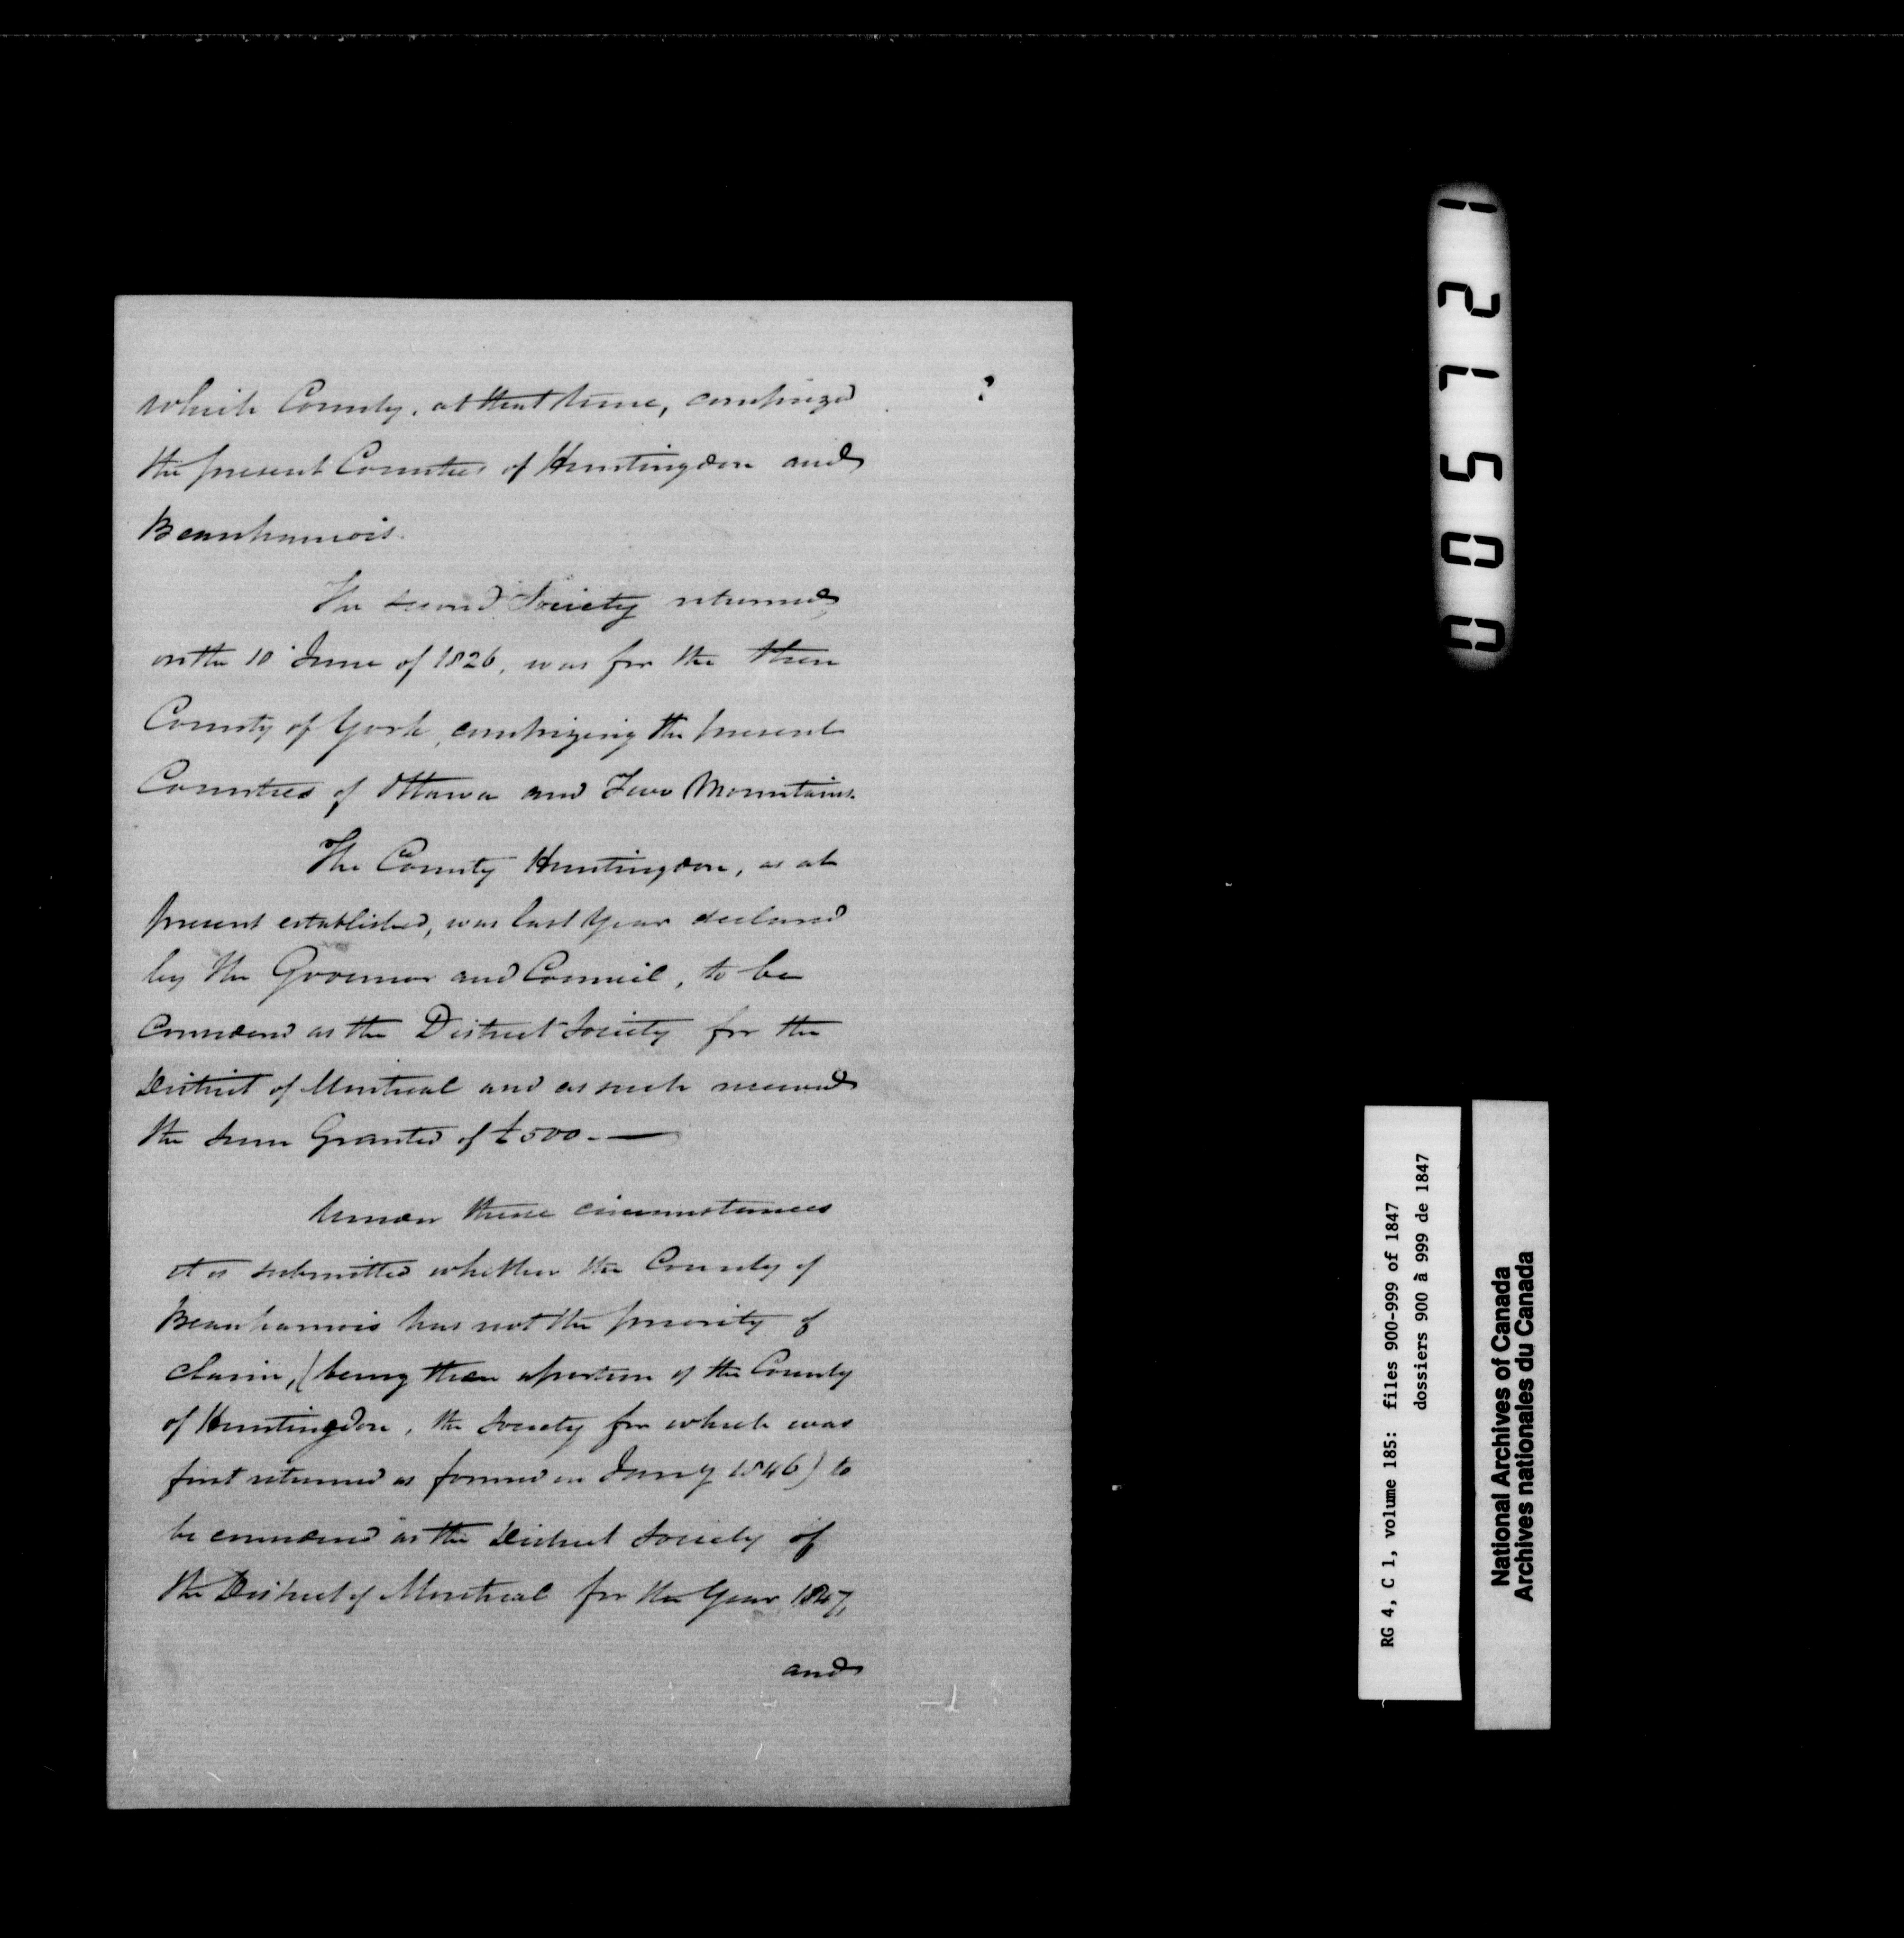 which County, at that time, comprized
the present Counties of Huntingdon and
Beauharnois.
The second Society returned,
on the 10 June of 1826, was for the then
County of York, comprizing the present
Counties of Ottawa and Two Mountains.
The County Huntingdon, as at
present established, was last Year declared
by the Governor and Council, to be
considered as the District Society for the
District of Montreal and as such received
the sum Granted of £500.—
Under these circumstances
it is submitted whether the County of
Beauharnois has not the priority of
claim, (being then a portion of the County
of Huntingdon, the Society for which was
first returned as formed in Jany 1846) to
be considered as the District Society of
the District of Montreal for the Year 1847,
and
?
005721
RG 4, C 1, volume 185: files 900-999 of 1847
dossiers 900 à 999 de 1847
National Archives of Canada
Archives nationales du Canada